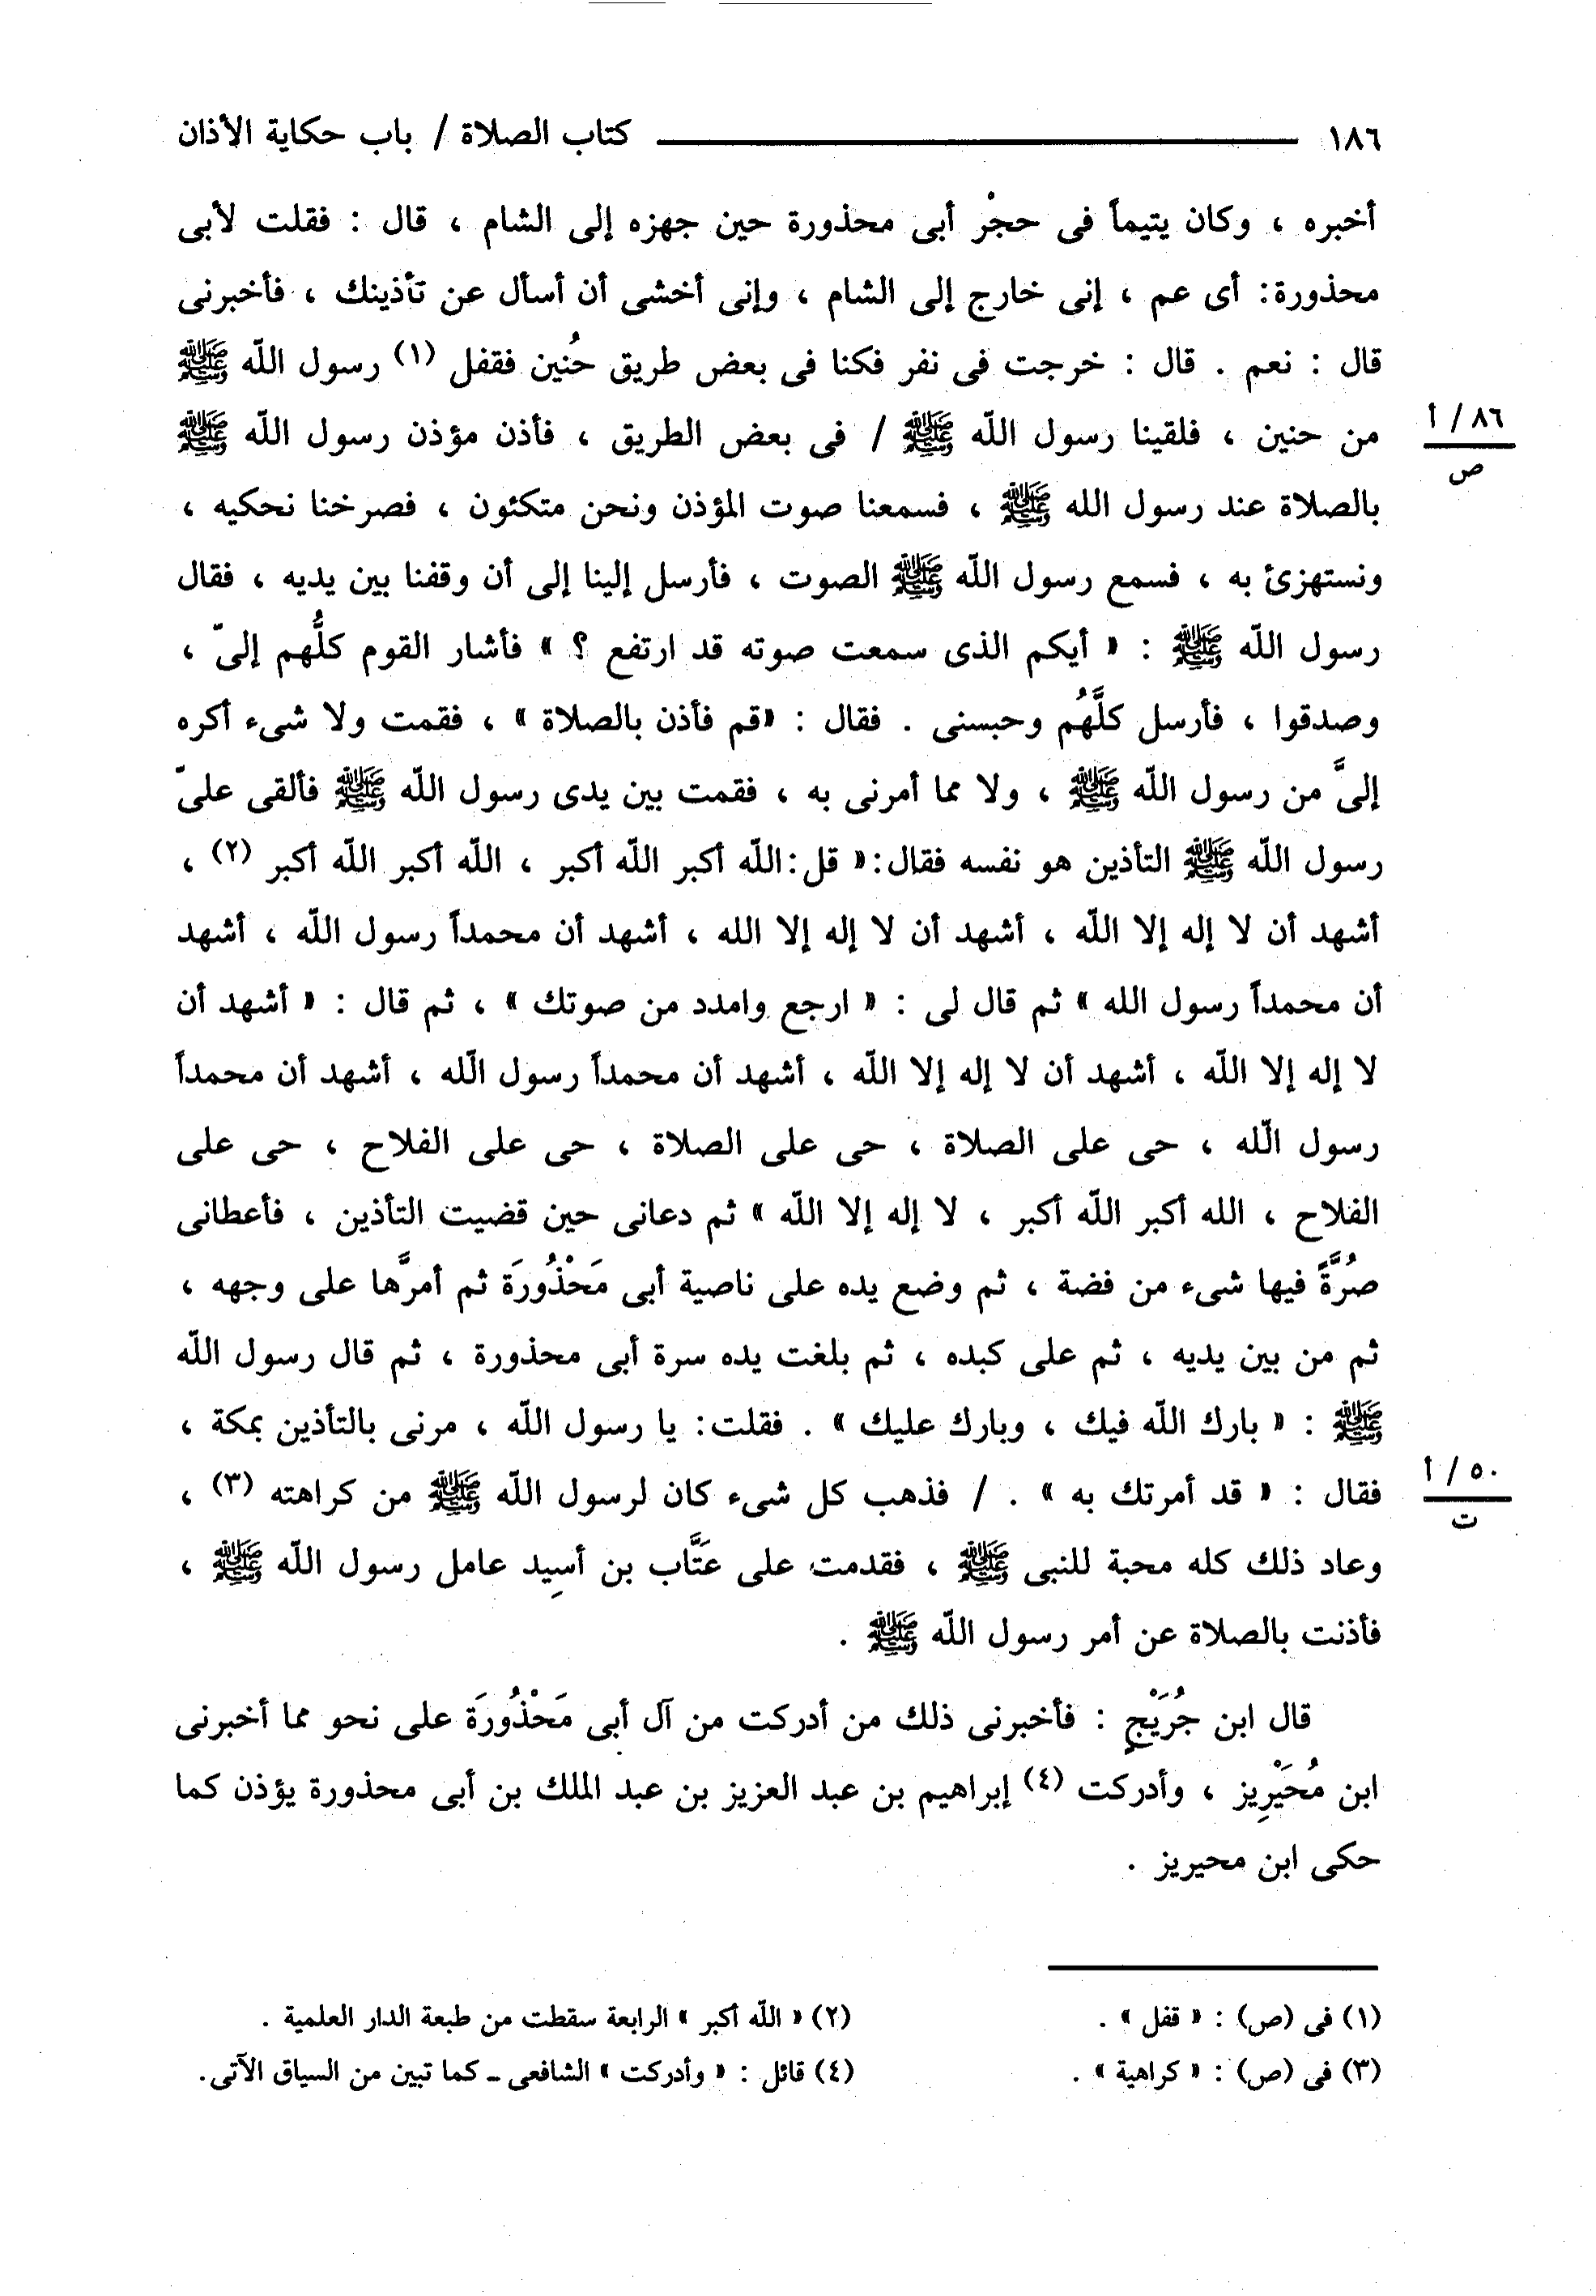 ١٨٦ كتاب الصلاة / باب حكاية الأذان
أخبره ، وكان يتيماً فى حجْر أبى محذورة حين جهزه إلى الشام ، قال : فقلت لأبى
محذورة: أى عم ، إنى خارج إلى الشام ، وإنى أخشى أن أسأل عن تأذينك ، فأخبرنى
قال : نعم . قال : خرجت فى نفر فكنا فى بعض طريق حُنين فقفل (١) رسول اللّه ﷺ
من حنين ، فلقينا رسول اللّه ﷺ / فى بعض الطريق ، فأذن مؤذن رسول اللّه ﷺ
٨٦ / أ
ص
بالصلاة عند رسول الله ﷺ ، فسمعنا صوت المؤذن ونحن متكئون ، فصرخنا نحكيه ،
ونستهزئ به ، فسمع رسول اللّه ﷺ الصوت ، فأرسل إلينا إلى أن وقفنا بين يديه ، فقال
رسول اللّه ﷺ : « أيكم الذى سمعت صوته قد ارتفع ؟ » فأشار القوم كلُّهم إلىّ ،
وصدقوا ، فأرسل كلَّهُم وحبسنى . فقال : «قم فأذن بالصلاة » ، فقمت ولا شىء أكره
إلىَّ من رسول اللّه ﷺ ، ولا مما أمرنى به ، فقمت بين يدى رسول اللّه ﷺ فألقى علىّ
رسول اللّه ﷺ التأذين هو نفسه فقال:« قل:اللّه أكبر اللّه أكبر ، اللّه أكبر اللّه أكبر (٢) ،
أشهد أن لا إله إلا اللّه ، أشهد أن لا إله إلا الله ، أشهد أن محمداً رسول اللّه ، أشهد
أن محمداً رسول الله » ثم قال لى : « ارجع وامدد من صوتك » ، ثم قال : « أشهد أن
لا إله إلا اللّه ، أشهد أن لا إله إلا اللّه ، أشهد أن محمداً رسول اللّه ، أشهد أن محمداً
رسول اللّه ، حى على الصلاة ، حى على الصلاة ، حى على الفلاح ، حى على
الفلاح ، الله أكبر اللّه أكبر ، لا إله إلا اللّه » ثم دعانى حين قضيت التأذين ، فأعطانى
صُرَّةً فيها شىء من فضة ، ثم وضع يده على ناصية أبى مَحْذُورَة ثم أمرَّها على وجهه ،
ثم من بين يديه ، ثم على كبده ، ثم بلغت يده سرة أبى محذورة ، ثم قال رسول اللّه
ﷺ : « بارك اللّه فيك ، وبارك عليك » . فقلت: يا رسول اللّه ، مرنى بالتأذين بمكة ،
فقال : « قد أمرتك به » . / فذهب كل شىء كان لرسول اللّه ﷺ من كراهته (٣) ،
٥٠ / أ
ت
وعاد ذلك كله محبة للنبى ﷺ ، فقدمت على عَتَّاب بن أسِيد عامل رسول اللّه ﷺ ،
فأذنت بالصلاة عن أمر رسول اللّه ﷺ .
قال ابن جُرَيْجٍ : فأخبرنى ذلك من أدركت من آل أبى مَحْذُورَة على نحو مما أخبرنى
ابن مُحَيْرِيز ، وأدركت (٤) إبراهيم بن عبد العزيز بن عبد الملك بن أبى محذورة يؤذن كما
حكى ابن محيريز .
(١) فى (ص) : « قفل » . (٢) « اللّه أكبر » الرابعة سقطت من طبعة الدار العلمية .
(٣) فى (ص) : « كراهية » . (٤) قائل : « وأدركت » الشافعى ــ كما تبين من السياق الآتى.